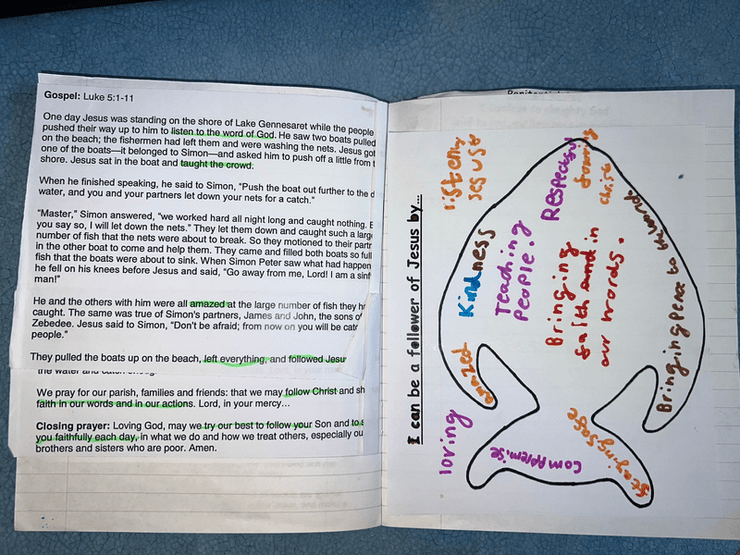 Gospel: Luke 5:1-11
One day Jesus was standing on the shore of Lake Gennesaret while the people
pushed their way up to him to listen to the word of God. He saw two boats pulled
on the beach; the fishermen had left them and were washing the nets. Jesus got
one of the boats—it belonged to Simon—and asked him to push off a little from t
shore. Jesus sat in the boat and taught the crowd.
When he finished speaking, he said to Simon, "Push the boat out further to the d
water, and you and your partners let down your nets for a catch."
"Master," Simon answered, "we worked hard all night long and caught nothing. B
you say so, I will let down the nets." They let them down and caught such a large
number of fish that the nets were about to break. So they motioned to their partn
in the other boat to come and help them. They came and filled both boats so full
fish that the boats were about to sink. When Simon Peter saw what had happen
he fell on his knees before Jesus and said, "Go away from me, Lord! I am a sinf
man!"
He and the others with him were all amazed at the large number of fish they ha
caught. The same was true of Simon's partners, James and John, the sons of
Zebedee. Jesus said to Simon, "Don't be afraid; from now on you will be catc
people."
They pulled the boats up on the beach, left everything, and followed Jesu
the water and
We pray for our parish, families and friends: that we may follow Christ and sh
faith in our words and in our actions. Lord, in your mercy…
Closing prayer: Loving God, may we try our best to follow your Son and to s
you faithfully each day, in what we do and how we treat others, especially ou
brothers and sisters who are poor. Amen.
I can be a follower of Jesus by...
listeny
Jesust
loving
amazed
Kindness
Teaching
People.
Bringing
faith and in
our words.
Respectful
christ
Bringing Peace to
compremise
Staying safe